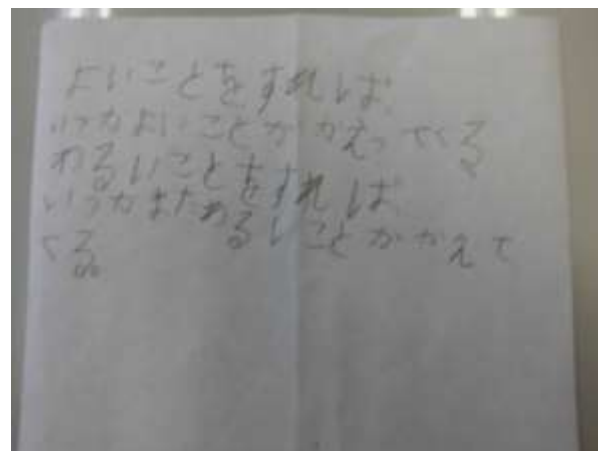 よいことをすれば、
いつかよいことがかえってくる
わるいことをすれば、
いつかまたわるいことがかえて
くる。